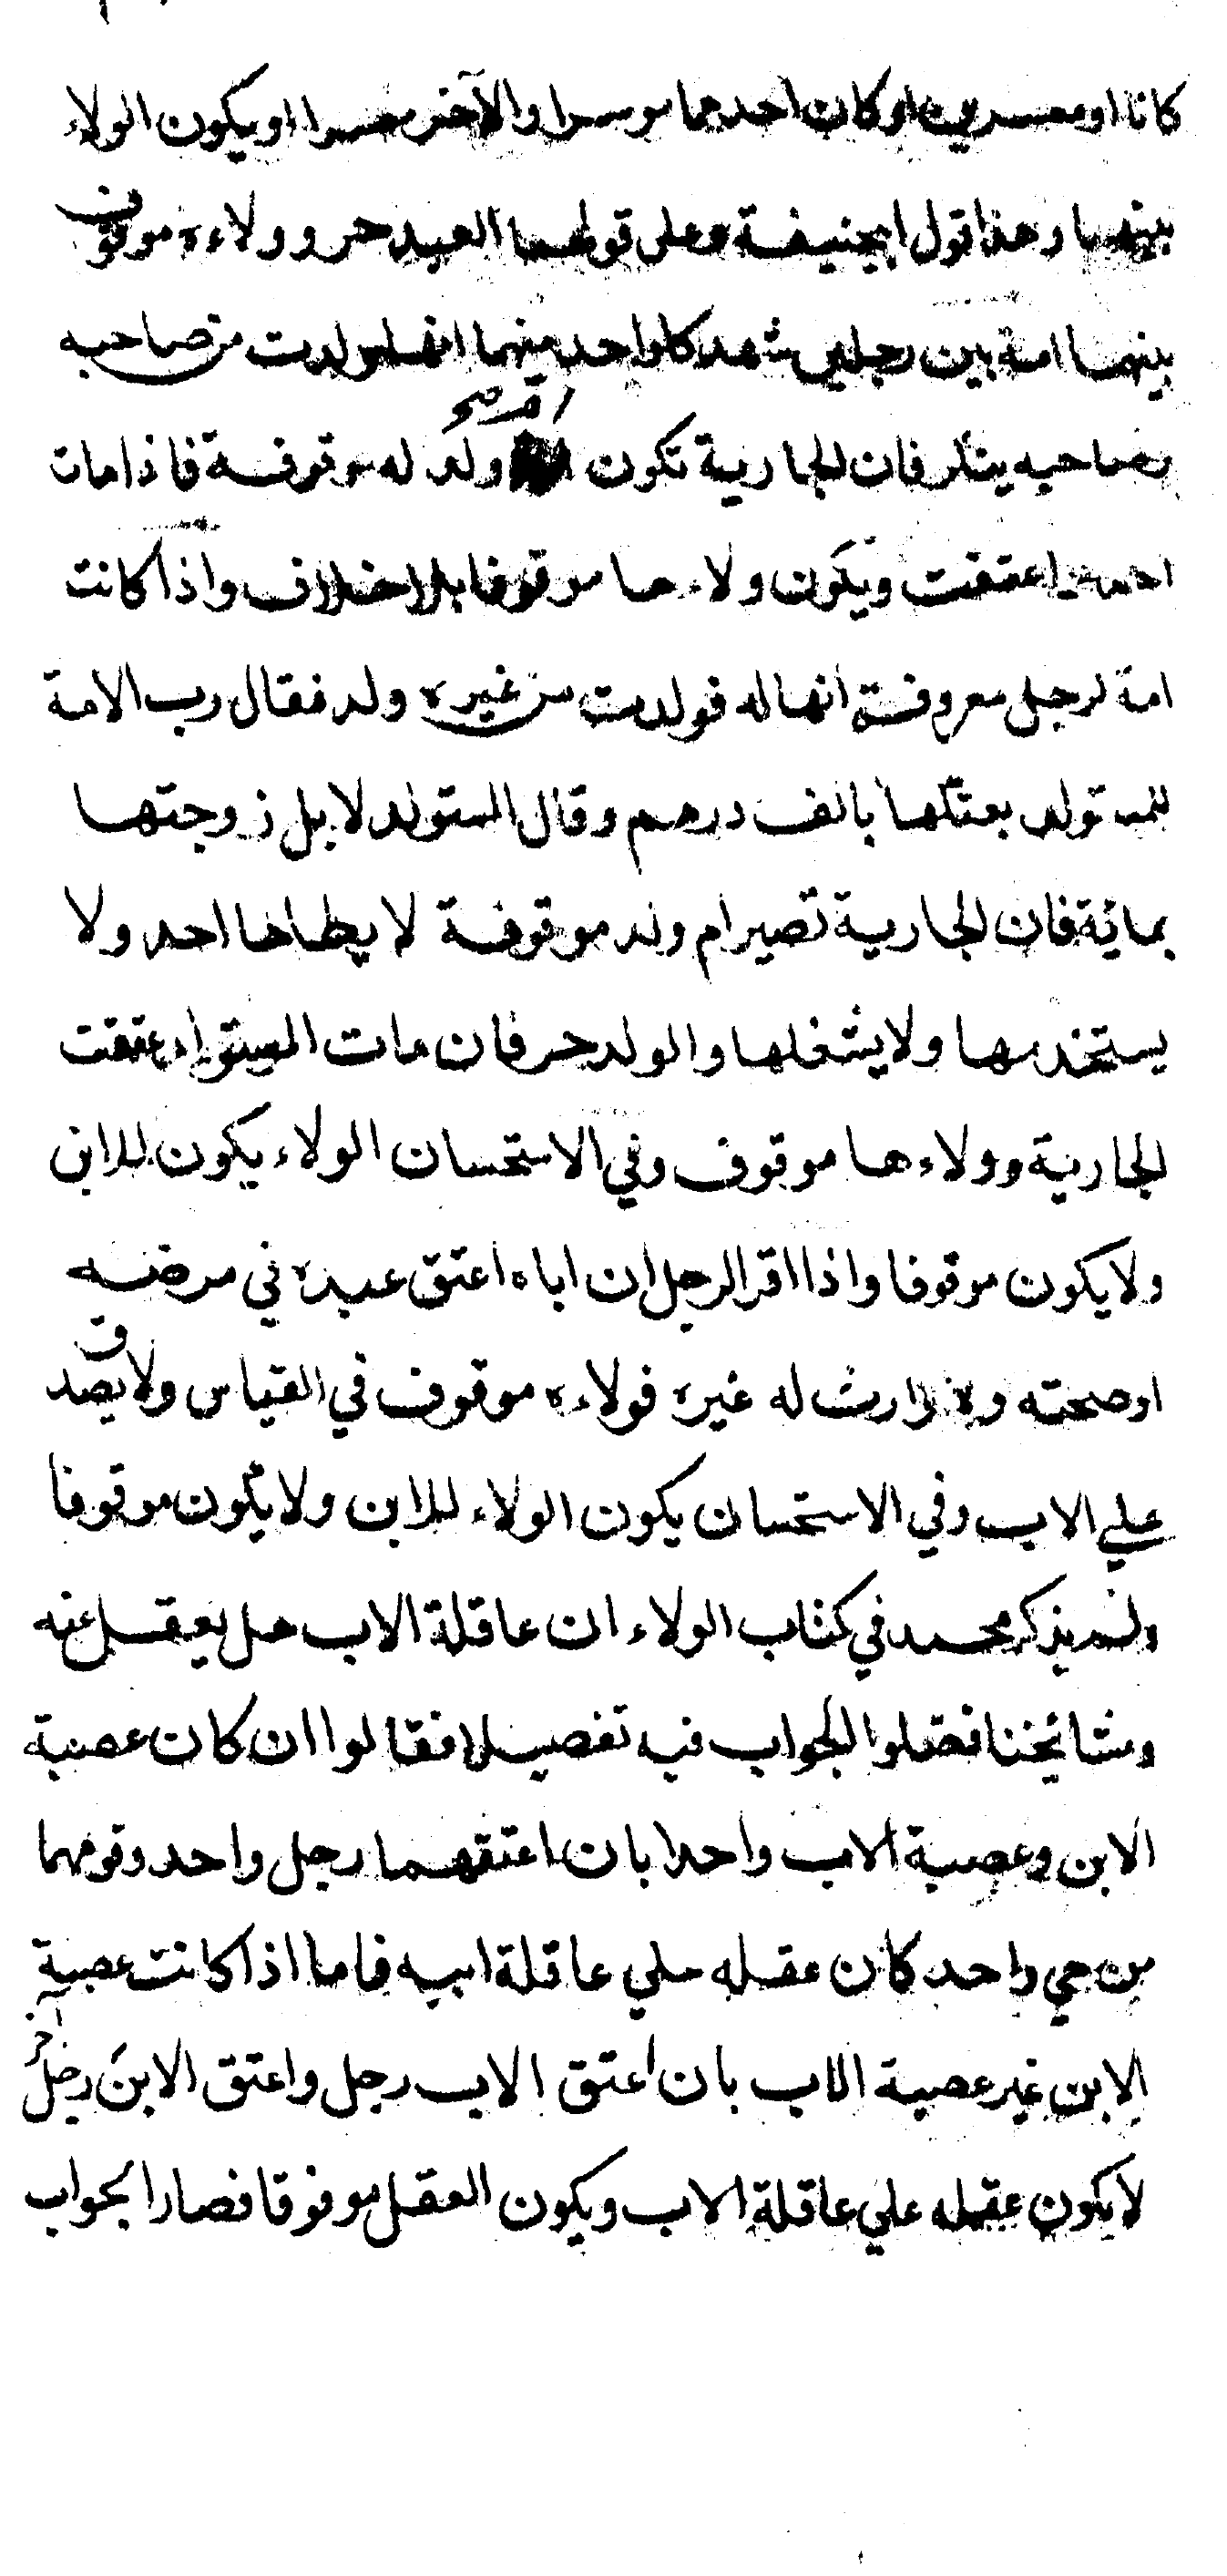 كانا او معسرين او كان احدهما موسرا والآخر معسرا او يكون الولاء
بينهما وهذا قول ابيحنيفة وعلى قولهما العبد حر وولاءه موقوف
بينهما امة بين رجلين شهد كل واحد منهما انها ولدت من صاحبه
وصاحبه ينكر فان الجارية تكون ام صح ولد له موقوفة فاذا مات
احدهما عتقت ويكون ولاءها موقوفا بلا خلاف واذا كانت
امة لرجل معروفة انها له فولدت من غيره ولد فقال رب الامة
للمستولد بعتكها بالف درهم وقال المستولد لا بل زوجتها
بمائة فان الجارية تصير ام ولد موقوفة لا يطاها احد ولا
يستخدمها ولا يشغلها والولد حر فان مات المستولد عتقت
الجارية وولاءها موقوف وفي الاستحسان الولاء يكون للابن
ولا يكون موقوفا واذا اقر الرجل ان اباه اعتق عبده في مرضه
او صحته ولا وارث له غيره فولاءه موقوف في القياس ولا يصدق
علي الاب وفي الاستحسان يكون الولاء للابن ولا يكون موقوفا
ولم يذكر محمد في كتاب الولاء ان عاقلة الاب هل يعقل عنه
ومشائخنا فصلوا الجواب فيه تفصيلا فقالوا ان كان عصبة
الابن وعصبة الاب واحدا بان اعتقهما رجل واحد وقومهما
من حي واحد كان عقله علي عاقلة ابيه فاما اذا كانت عصبة
الابن غير عصبة الاب بان اعتق الاب رجل واعتق الابن رجل آخر
لا يكون عقله علي عاقلة الاب ويكون العقل موقوفا فصار الجواب